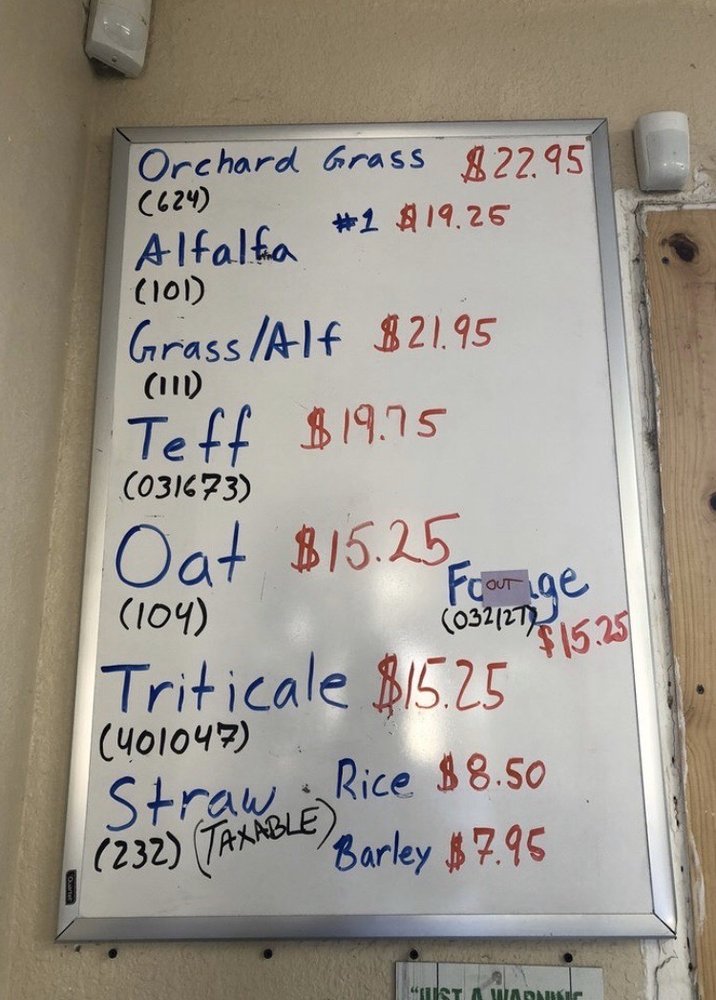 Orchard Grass $22.95
(624)
#1 $19.25
Alfalfa
(101)
Grass/Alf $21.95
(111)
Teff $19.75
(031673)
Oat $15.25
(104)
OUT
(032127)
$15.25
Triticale $15.25
(401047)
Straw Rice $8.50
(232) (TAXABLE) Barley $7.95
Quartet
"JUST A WARNING